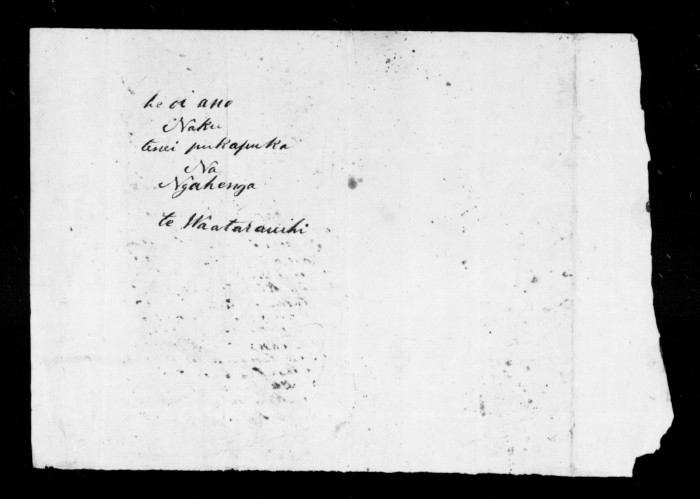 he oi ano
Naku
tenei pukapuka
Na
Ngahenga
te Waataraurihi